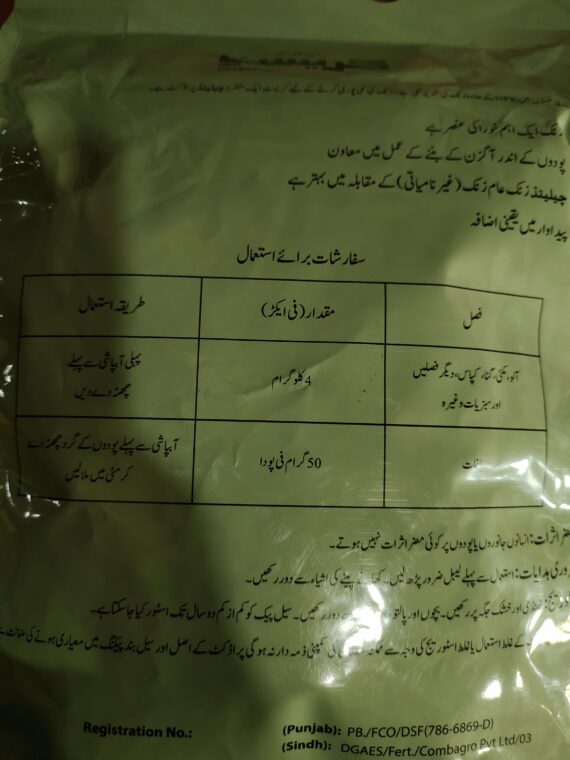 زنک ایک اہم خوراکی عنصر ہے
پودوں کے اندر آگزن کے بننے کے عمل میں معاون
چیلیٹڈ زنک عام زنک (غیر نامیاتی) کے مقابلہ میں بہتر ہے
پیداوار میں یقینی اضافہ
سفارشات برائے استعمال
فصل
مقدار (فی ایکڑ)
طریقہ استعمال
آلو، مکئی، گنا، کپاس، دیگر فصلیں
اور سبزیات وغیرہ
4 کلوگرام
پہلی آبپاشی سے پہلے
چھٹہ دے دیں
50 گرام فی پودا
آبپاشی سے پہلے پودوں کے گرد چھٹہ دے
کر مٹی میں ملائیں
اثرات: انسانوں جانوروں یا پودوں پر کوئی مضر اثرات نہیں ہوتے۔
ہدایات: استعمال سے پہلے لیبل ضرور پڑھ لیں۔ کھانے پینے کی اشیاء سے دور رکھیں۔
اور خشک جگہ پر رکھیں۔ بچوں اور پالتو سے دور رکھیں۔ سیل پیک کو کم از کم دو سال تک اسٹور کیا جا سکتا ہے۔
کے غلط استعمال یا غلط اسٹوریج کی وجہ سے کمپنی ذمہ دار نہ ہوگی پراڈکٹ کے اصل اور سیل بند پیکنگ میں معیاری ہونے کی ضمانت ہے
Registration No.:
(Punjab): PB./FCO/DSF(786-6869-D)
(Sindh): DGAES/Fert./Combagro Pvt Ltd/03